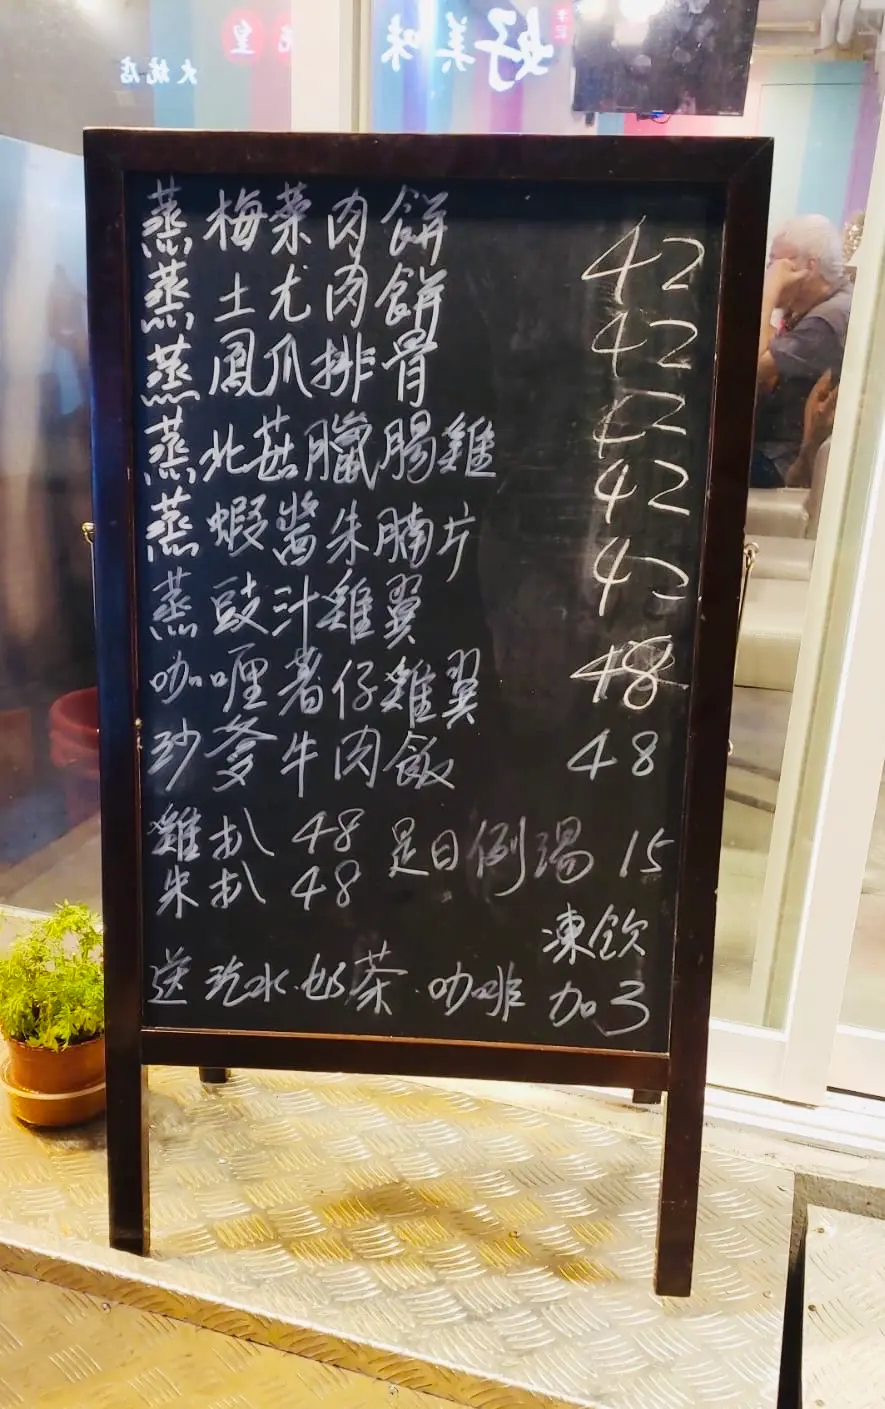 好美味
皇
大坑店
蒸梅菜肉餅
蒸土尤肉餅 42
蒸鳳爪排骨 42
蒸北菇臘腸雞 42
蒸蝦醬朱腩片 42
蒸豉汁雞翼 42
咖喱著仔雞翼 48
沙爹牛肉飯 48
雞扒 48 是日例湯 15
朱扒 48
凍飲
送汽水.奶茶.咖啡 加3